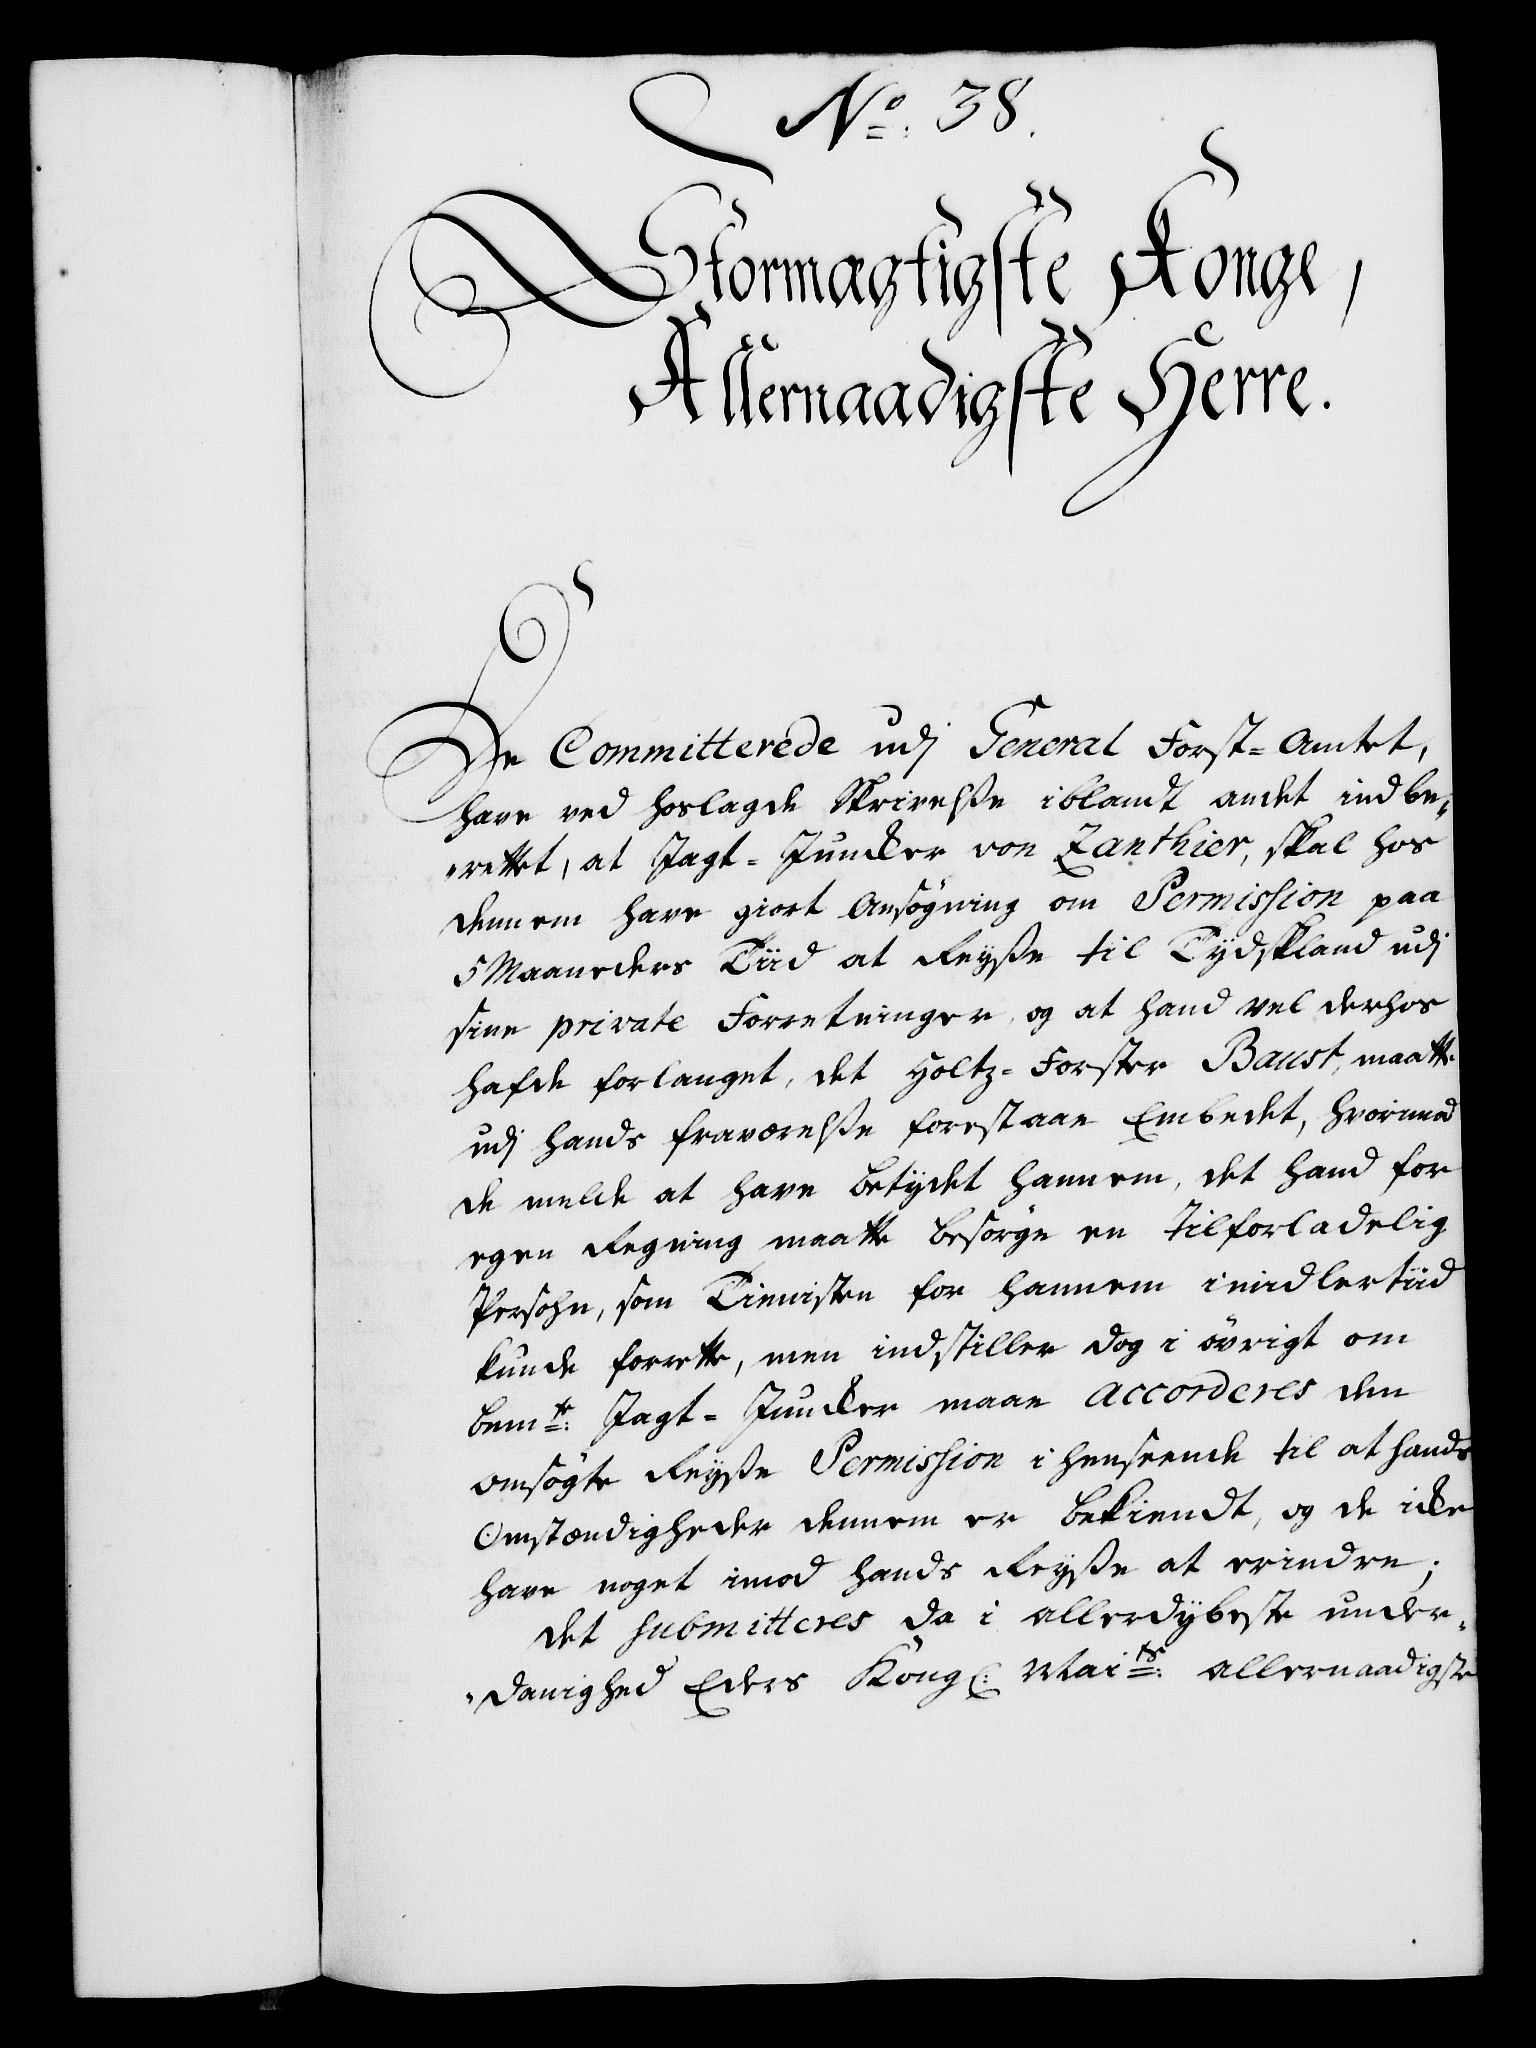 No: 38.
Stormagtigste Konge,
Allernaadigste Herre.
De Committerede udj General Forst-Amtet,
have ved hoslagde Skrivelße iblandt andet indbe-
rettet, at Jagt-Juncker von Zanthier, skal hos
dennem have giort Ansögning om Permission paa
5 Maaneders Tiid at Reyße til Tydskland udj
sine private Forretninger, og at hand vel derhos
hafde forlanget, det Holtz-Forster Baust, maatte
udj hands fraværelße forestaae Embedet, hvorimod
de melde at have betydet hannem, det hand for
egen Regning maatte besörge en tilforladelig
Persohn, som Tienisten for hannem imidlertiid
kunde forrette, men indstiller dog i övrigt om
bemte: Jagt-Juncker maae accorderes den
omsögte Reyße Permission i henseende til at hands
Omstændigheder dennem er bekiendt, og de icke
have noget imod hands Reyße at erindre;
det submitteres da i allerdybeste under-
danighed Eders Kongl: Maits: allernaadigste